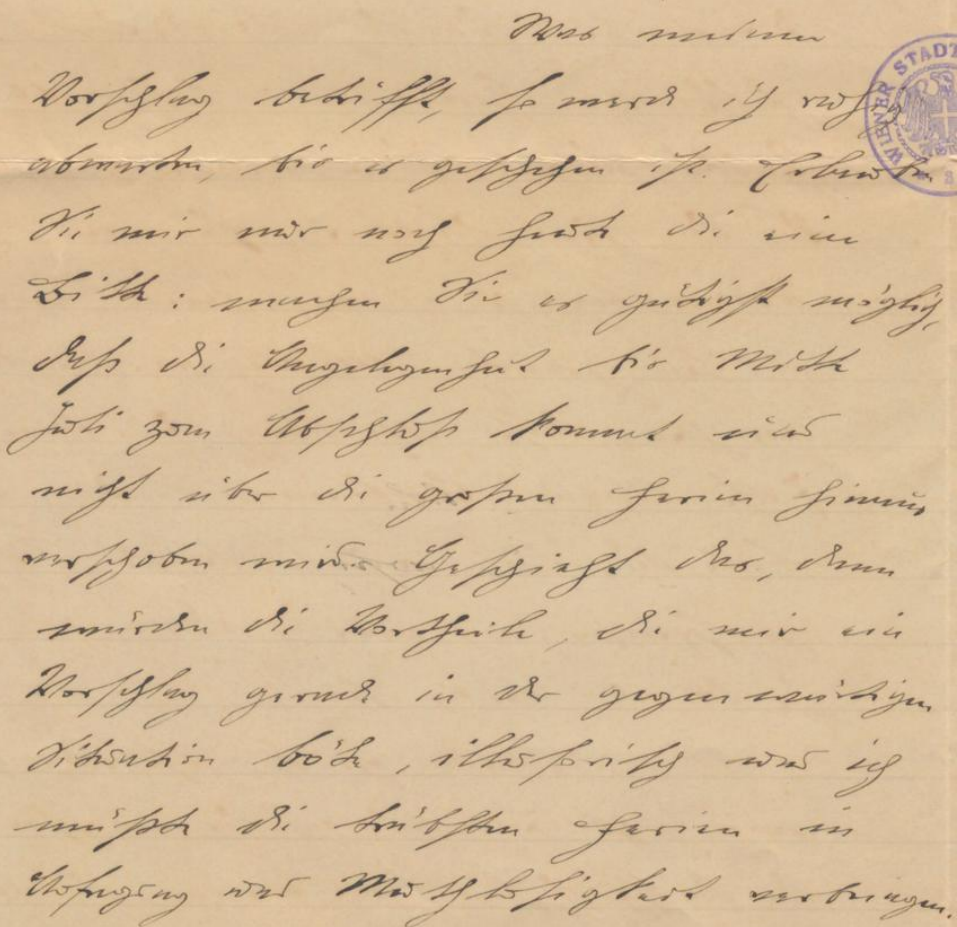 Was meinen
Vorschlag betrifft, so werde ich ruhig
abwarten, bis es geschehen ist. Erlauben
Sie mir nur noch heute die eine
Bitte: machen Sie es gütigst möglich,
daß die Angelegenheit bis Mitte
Juli zum Abschluß kommt und
nicht über die großen Ferien hinaus
verschoben wird. Geschieht das, dann
würden die Vortheile, die mir ein
Vorschlag gerade in der gegenwärtigen
Situation böte, illusorisch und ich
müßte die trübsten Ferien in
Aufregung und Muthlosigkeit verbringen.
WIENER STADT